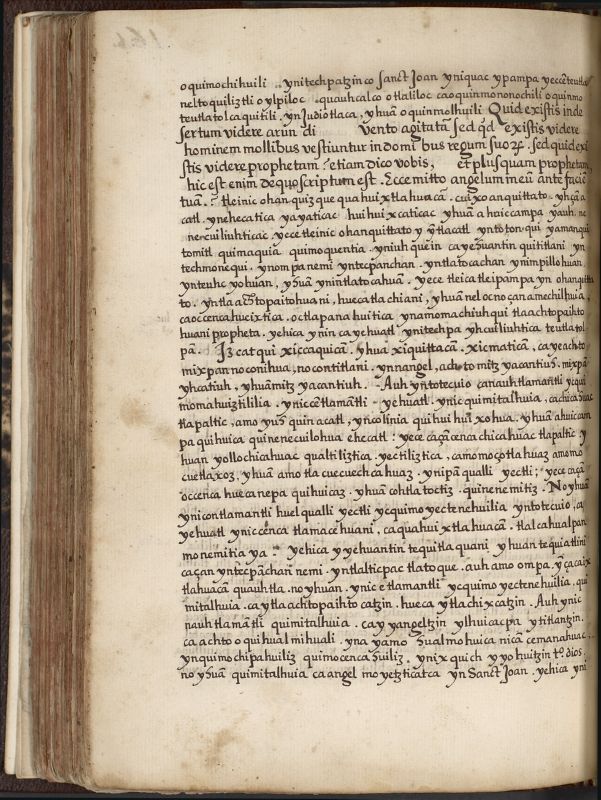 oquimochihuili .. ynitechpatzinco Sanct Joan yniquac ypampa yeccēteutla
neltoquiliztli oylpiloc . quauhcalco otlaliloc caoquinmononochili oquinmo
teutlatolcaquitili . ynJudiotlaca, yhuā oquinmolhuili Quid existis inde
sertum videre arundi vento agitatā sed qd existis videre
hominem mollibus vestiuntur indomibus regum suoꝝ . sed quid exi
stis videre prophetam ? etiam dico vobis, et plusquam prophetam,
hic est enim de quo scriptum est . Ecce mitto angelum meū ante faciē
tuā . ? tleinic ohanquizque quahuixtlahuacā . cuix oanquittato . yhcā a
catl . ynehecatica yayaticac huihuixcaticac yhuā ahuiccampa yauh. ne
necuiliuhticac . yece tleinic ohanquittato y ytlacatl yntoton . qui yamanqui
tomitl quimaquia quimoquentia . yniuh quein ca yehuantin quititlani yn
techmonequi . ynompa nemi yntecpanchan . yntlatocachan ynimpillohuan
ynteuhcyohuan, yhuā ynintlatocahuā . yece tleica tleipampa yn ohanquitta
to . yntla achtopaitohuani, huecatlachiani, yhuā nel ocnoçan amechilhuia,
caoccencahucixtica . octlapanahuitica ynamomachiuhqui tlaachtopaihto
huani propheta . yehica ynin ca yehuatl ynitechpa yhcuiliuhtica teutlatol
pā . Iz catqui xiccaquicā . yhua xiquittacā . xicmaticā, ca yeachto
mixpan noconihua, nocontitlani . ynnangel, achto mitzyacantius . mixpā
yhcatiuh, yhuā mitzyacantiuh . Auh yntotecuio canauhtlamantli ycqui
momahuiztililia . yniccētlamātli yehuatl . ynic quimitalhuia, cachicahuac
tlapaltic, amo yuh quin acatl, yncolinia quihuihuixohua . yhuā ahuicam
pa quihuica quinenecuilohua ehecatl : yece caçā cenca chicahuac tlapaltic y
huan yollochicahuac qualtiliztica . yectiliztica, camomoçotlahuaz amomo
cuetlaxoz, yhuā amo tlacuecuechcahuaz . ynipā qualli yectli ; yece caçā
occenca huecanepa quihuicaz . yhuā cohtlatoctiz . quinenemitiz . No yhuā
ynic ontlamantli huel qualli yectli ycquimoyectenehuilia yntotecuio, ca
yehuatl yniccēnca tlamacēhuani, caquahuixtlahuacā . tlalcahualpan
monemitia ya : yehica yyehuantin tequitlaquani yhuan tequiatlini
caçan yntecpāchan nemi . yntlalticpac tlatoque . auh amo ompa . y cacaix
tlahuacā quauhtla . no yhuan . ynic etlamantli ycquimoyectenehuilia . qui
mitalhuia . ca ytlaachtopaihtocatzin . hueca ytlachixcatzin . Auh ynic
nauhtlamātli quimitalhuia . ca yyangeltzin ylhuicacpa ytitlantzin .
ca achto oquihualmihuali . yna yamo hualmohuica nicā cemanahuac .
ynquimochipahuiliz quimocencahuiliz . ynixquich yyohuitzin tº. dios.
no yhuā quimitalhuia ca angel moyetzticatca yn Sanct Joan . yehica yni